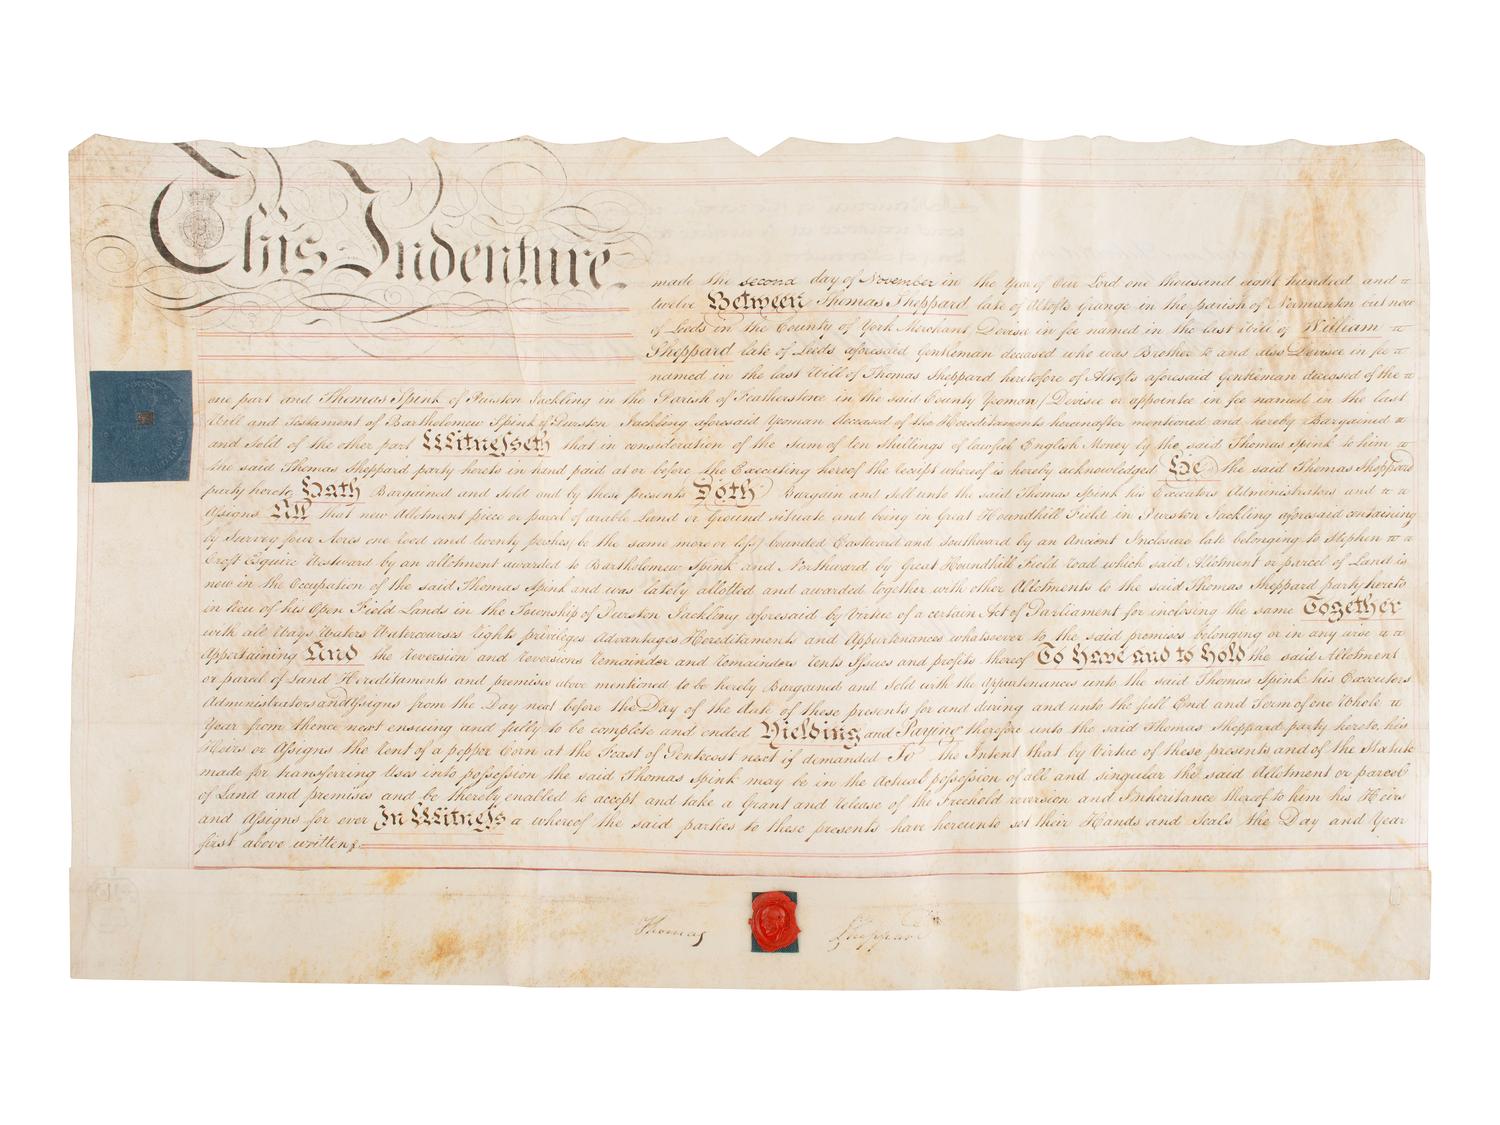 This Indenture
made the second day of November in the Year of Our Lord one thousand eight hundred and
twelve Between Thomas Sheppard late of Altofts Grange in the parish of Normanton but now
of Leeds in the County of York Merchant Devisee in fee named in the last Will of William
Sheppard late of Leeds aforesaid Gentleman deceased who was Brother to and also Devisee in fee
named in the last Will of Thomas Sheppard heretofore of Altofts aforesaid Gentleman deceased of the
one part and Thomas Spink of Purston Jackling in the Parish of Featherstone in the said County Yeoman (Devisee or appointee in fee named in the last
Will and Testament of Bartholomew Spink of Purston Jackling aforesaid Yeoman deceased of the Hereditaments hereinafter mentioned and hereby Bargained
and Sold of the other part Witnesseth that in consideration of the Sum of ten Shillings of lawful English Money by the said Thomas Spink to him
the said Thomas Sheppard party hereto in hand paid at or before the Executing hereof the receipt whereof is hereby acknowledged He the said Thomas Sheppard
party hereto Hath Bargained and Sold and by these presents Doth Bargain and Sell unto the said Thomas Spink his Executors Administrators and
Assigns All that new Allotment piece or parcel of arable Land or Ground situate and being in Great Houndhill Field in Purston Jackling aforesaid containing
by Survey four Acres one rood and twenty perches (be the same more or less) bounded Eastward and Southward by an Ancient Inclosure late belonging to Stephen
Croft Esquire Westward by an allotment awarded to Bartholomew Spink and Northward by Great Houndhill Field road which said Allotment or parcel of Land is
now in the Occupation of the said Thomas Spink and was lately allotted and awarded together with other Allotments to the said Thomas Sheppard party hereto
in lieu of his Open Field Lands in the Township of Purston Jackling aforesaid by Virtue of a certain Act of Parliament for inclosing the same Together
with all Ways Waters Watercourses Rights privileges Advantages Hereditaments and Appurtenances whatsoever to the said premises belonging or in any wise
Appertaining And the Reversion and Reversions Remainder and Remainders Rents Issues and profits thereof To Have and to Hold the said Allotment
or parcel of Land Hereditaments and premises above mentioned to be hereby Bargained and Sold with the Appurtenances unto the said Thomas Spink his Executors
Administrators and Assigns from the Day next before the Day of the date of these presents for and during and unto the full End and Term of one Whole
Year from thence next ensuing and fully to be complete and ended Yielding and Paying therefore unto the said Thomas Sheppard party hereto, his
Heirs or Assigns the Rent of a pepper Corn at the Feast of Pentecost next if demanded To the Intent that by Virtue of these presents and of the Statute
made for transferring Uses into possession the said Thomas Spink may be in the Actual possession of all and singular the said Allotment or parcel
of Land and premises and be thereby enabled to accept and take a Grant and Release of the Freehold reversion and Inheritance thereof to him his Heirs
and Assigns for ever In Witness whereof the said parties to these presents have hereunto set their Hands and Seals the Day and Year
first above written
Thomas Sheppard